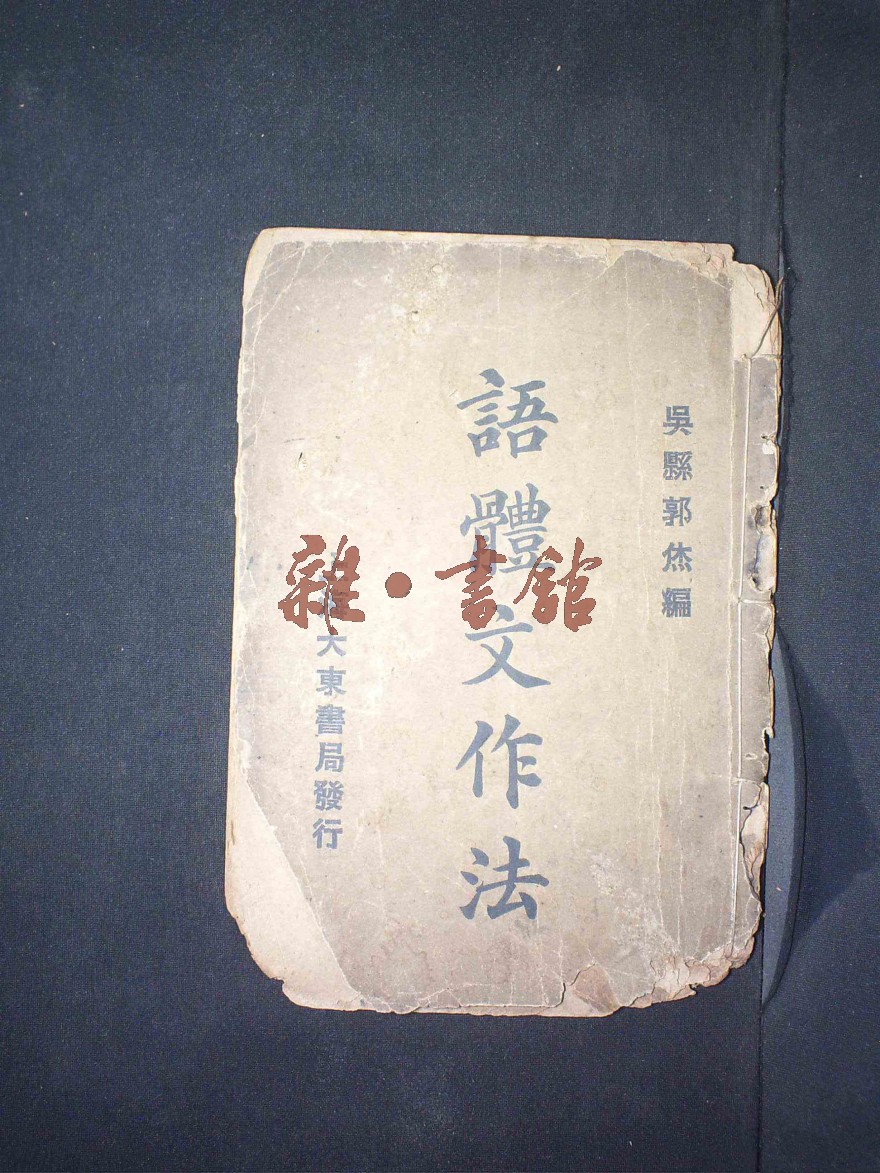 吳縣郭烋編
語體文作法
大東書局發行
雜·書館